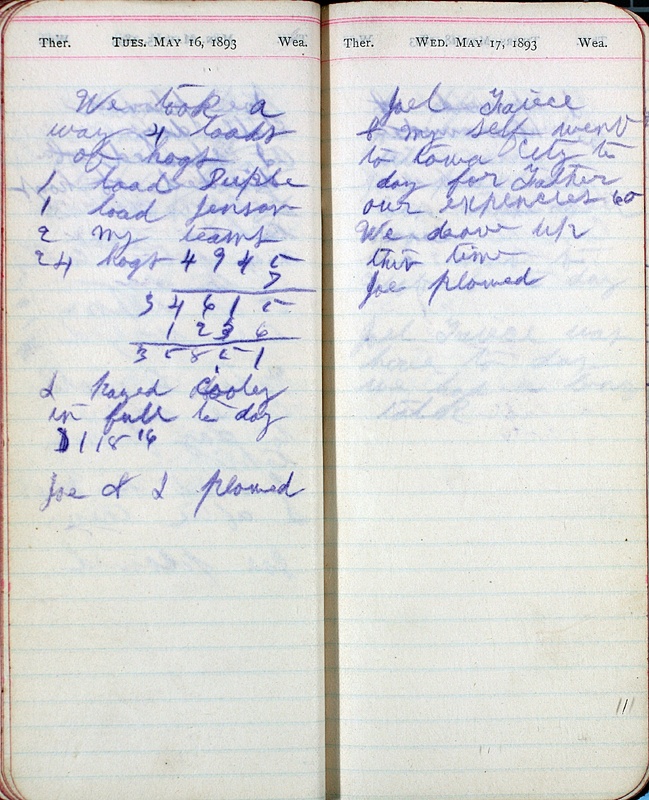 Ther. TUES. MAY 16, 1893 Wea.
We took a
way 4 loads
of hogs
1 load
1 load Jenson
2 my teams
24 hogs 4 9 4 5
7
3 4 6 1 5
1 2 3 6
3 5 8 5 1
I payed Cooley
in full to day
$118 16
Joe & I plowed
Ther. WED. MAY 17, 1893 Wea.
Joel
& my self went
to Iowa City to
day for Father
our expencies 60
We drove up
this time
Joe plowed
111